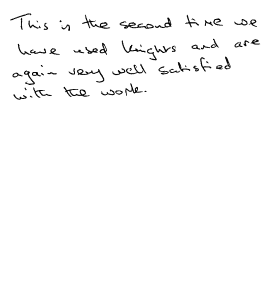 This is the second time we
have used Knights and are
again very well satisfied
with the work.